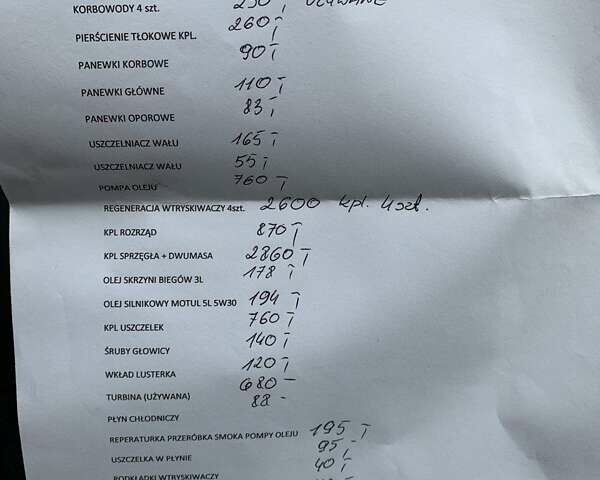 KORBOWODY 4 szt. 250,- UŻYWANE
PIERŚCIENIE TŁOKOWE KPL. 260,-
PANEWKI KORBOWE 90,-
PANEWKI GŁÓWNE 110,-
PANEWKI OPOROWE 83,-
USZCZELNIACZ WAŁU 165,-
USZCZELNIACZ WAŁU 55,-
POMPA OLEJU 760,-
REGENERACJA WTRYSKIWACZY 4szt. 2600 kpl. 4szt.
KPL ROZRZĄD 870,-
KPL SPRZĘGŁA + DWUMASA 2860,-
OLEJ SKRZYNI BIEGÓW 3L 178,-
OLEJ SILNIKOWY MOTUL 5L 5W30 194,-
KPL USZCZELEK 760,-
ŚRUBY GŁOWICY 140,-
WKŁAD LUSTERKA 120,-
TURBINA (UŻYWANA) 680 -
PŁYN CHŁODNICZY 88 -
REPERATURKA PRZERÓBKA SMOKA POMPY OLEJU 195,-
USZCZELKA W PŁYNIE 95,-
PODKŁADKI WTRYSKIWACZY 40,-